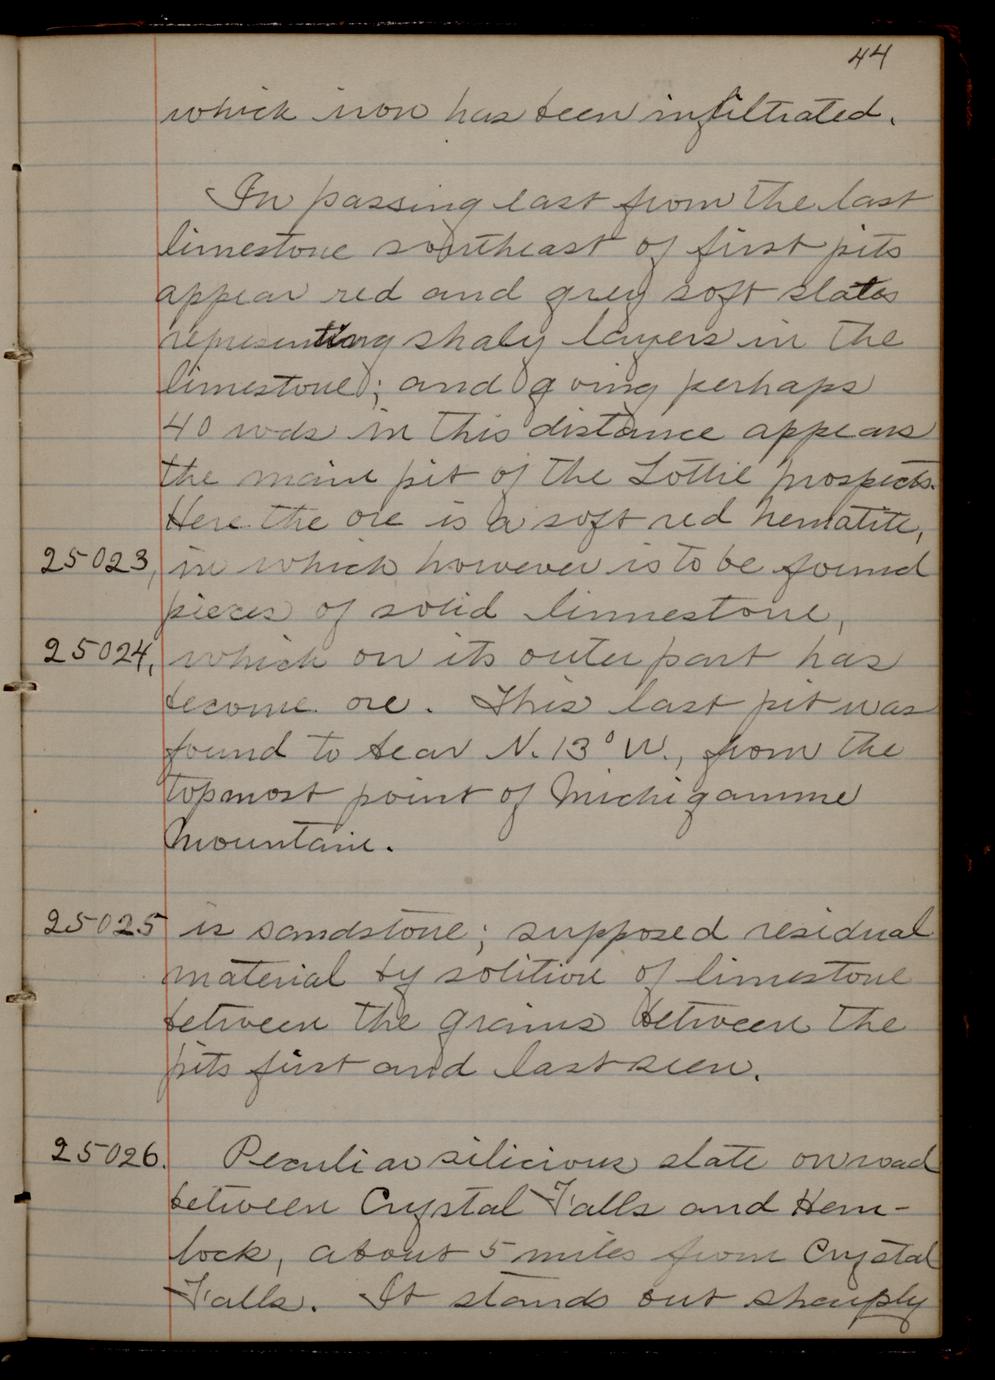 44
which iron has been infiltrated.
In passing east from the last
limestone southeast of first pits
appear red and grey soft slates
representing shaly layers in the
limestone; and going perhaps
40 rods in this distance appears
the main pit of the Lottie prospects.
Here the ore is a soft red hematite,
25023, in which however is to be found
pieces of solid limestone,
25024, which on its outer part has
become ore. This last pit was
found to bear N. 13° W., from the
topmost point of Michigamme
Mountain.
25025 is sandstone; supposed residual
material by solition of limestone
between the grains between the
pits first and last seen.
25026. Peculiar silicious slate on road
between Crystal Falls and Hem-
lock, about 5 miles from Crystal
Falls. It stands out sharply